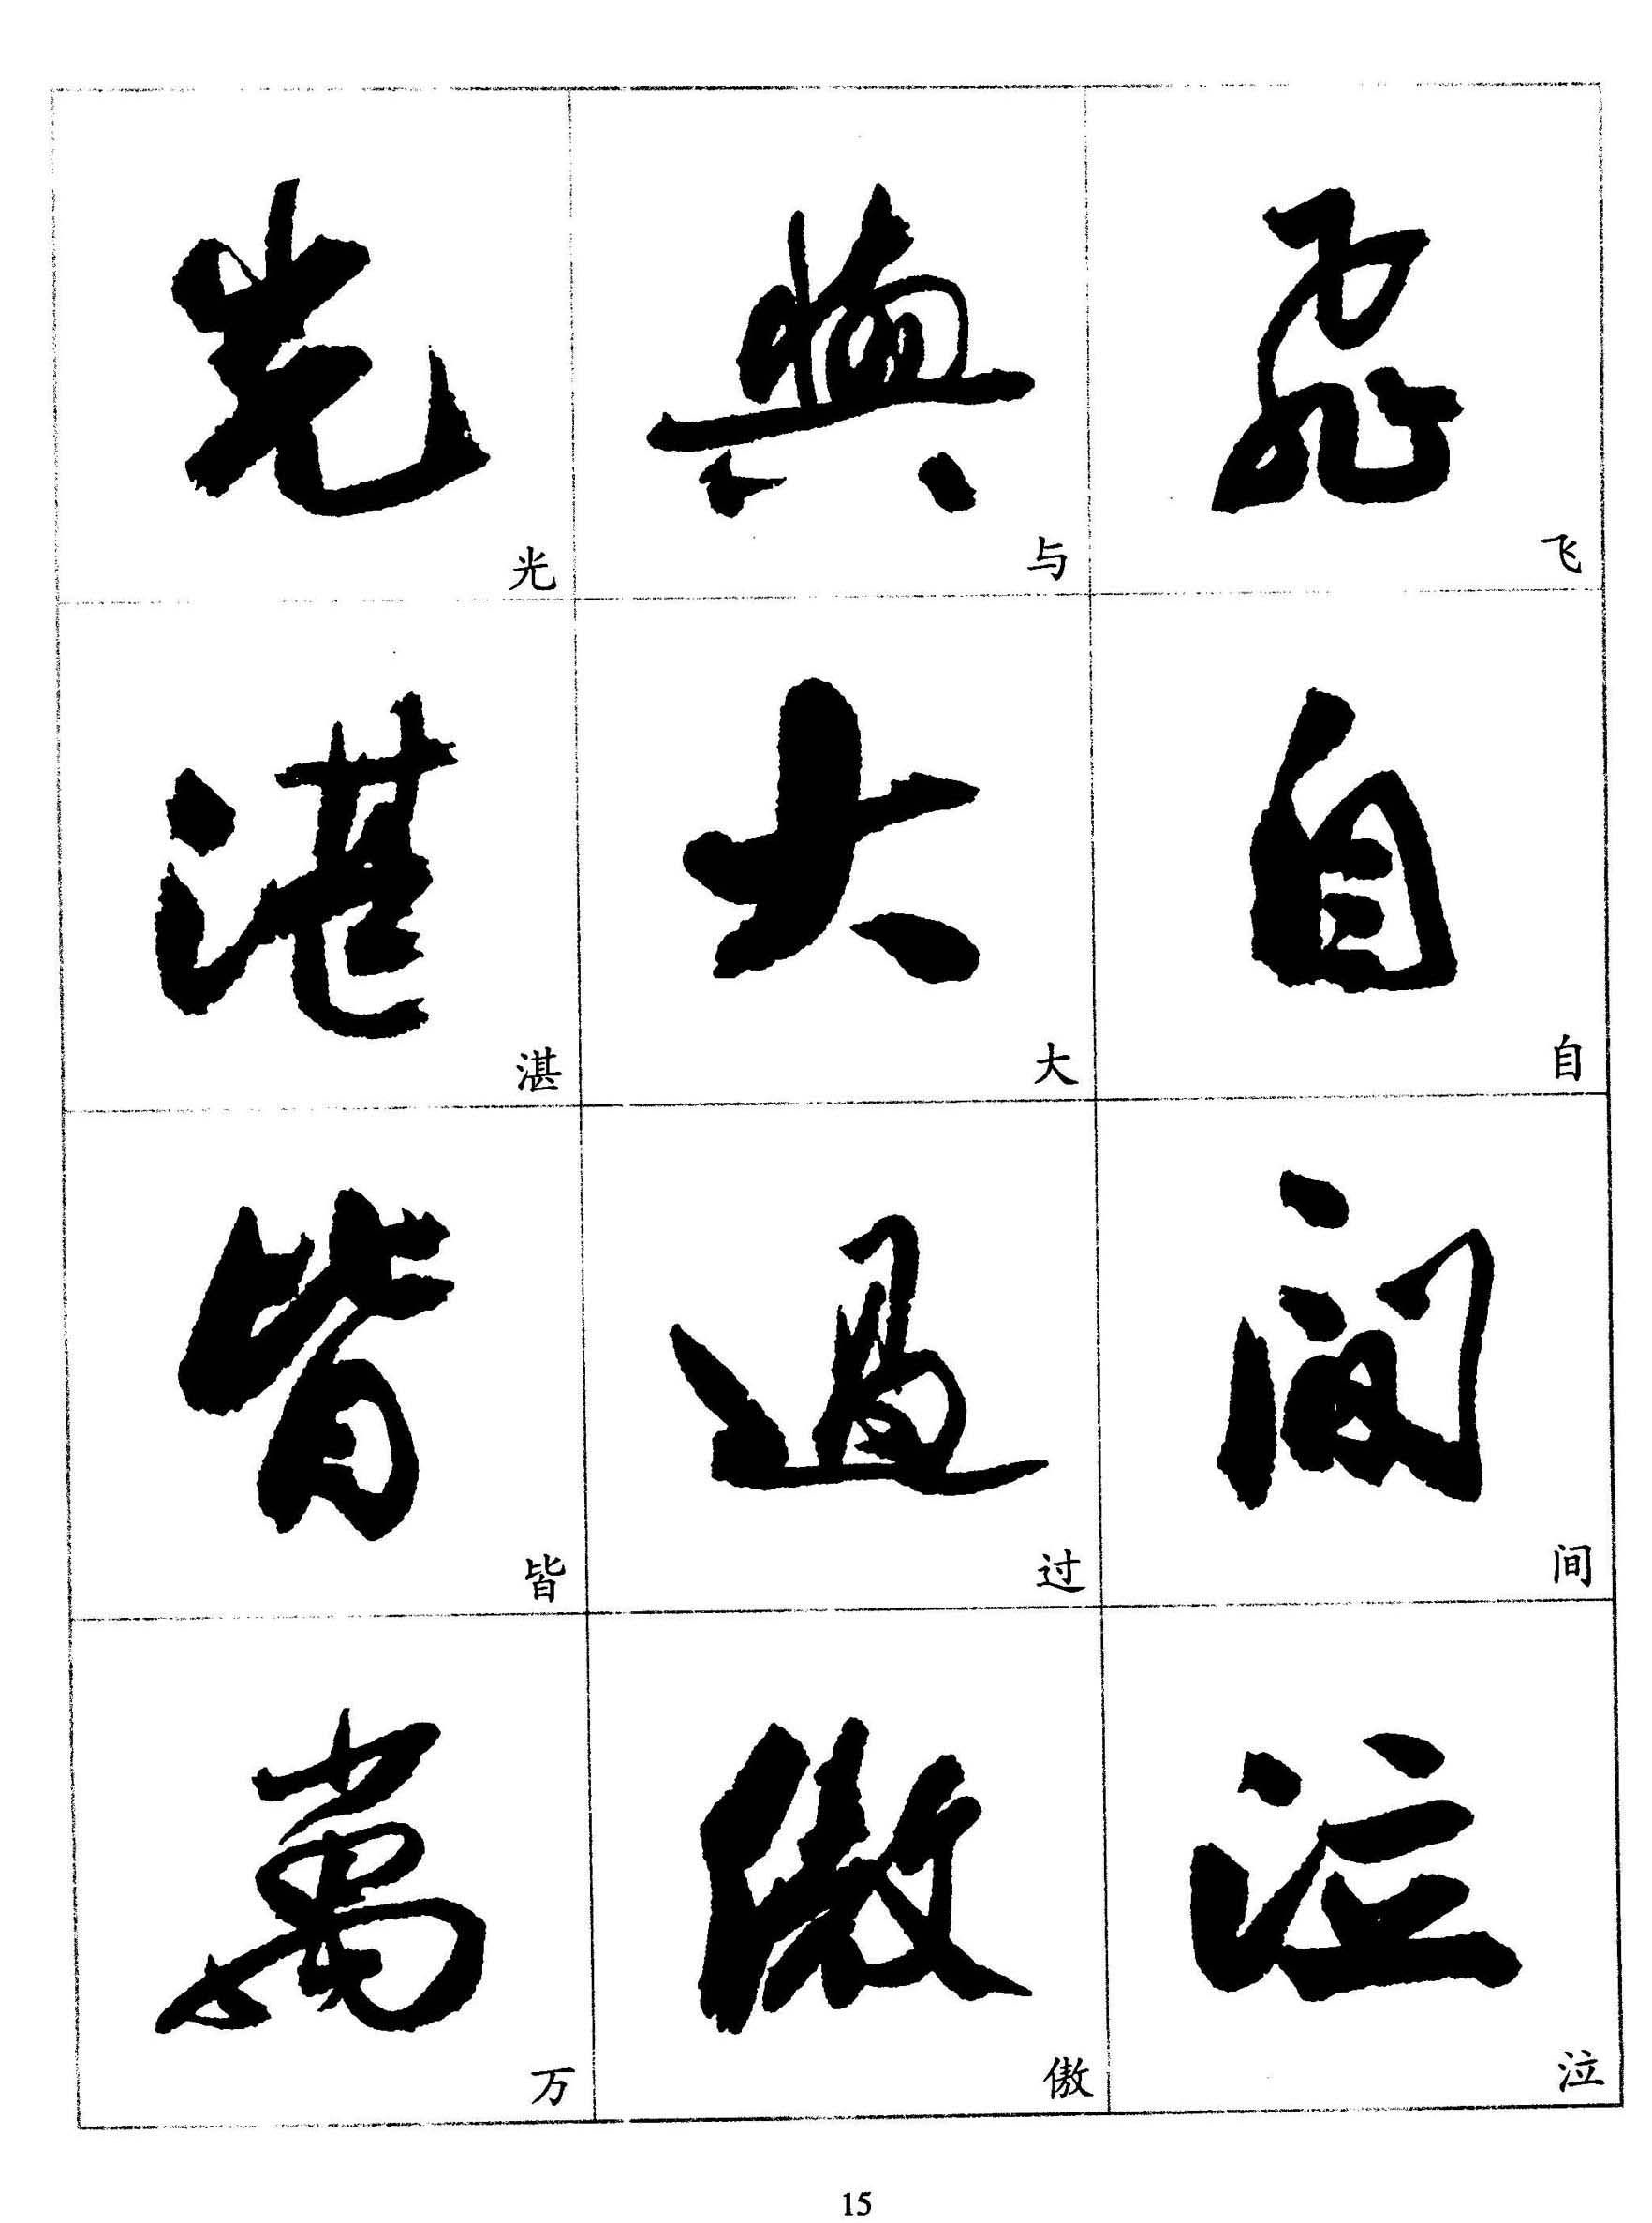 光 與 飛
光 与 飞
湛 大 自
湛 大 自
皆 過 间
皆 过 间
萬 傲 泣
万 傲 泣
15